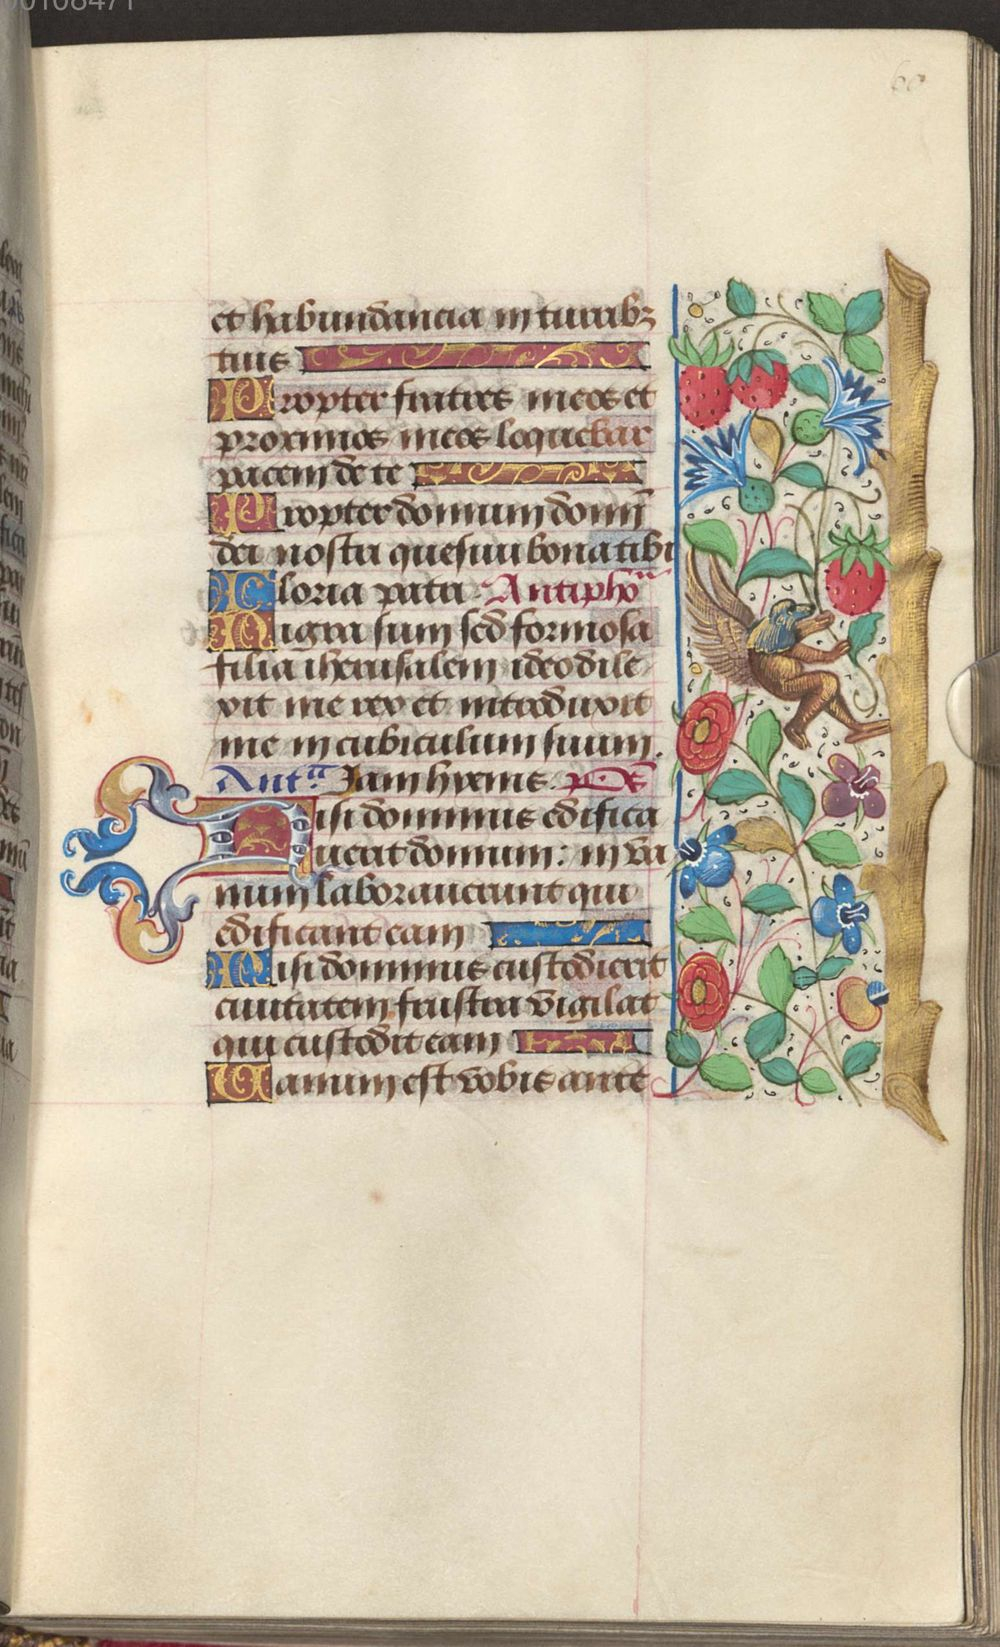 00108471
60
et habundancia in turribꝫ
tuis
Propter fratres meos et
proximos meos loquebar
pacem de te
Propter domum domī
dei nostri quesiui bona tibi
Gloria patri Antiphoᵃ
Nigra sum sed formosa
filia iherusalem ideo dile
xit me rex et introduxit
me in cubiculum suum.
Antᵃ. Iam hyems. Ps̄
Nisi dominus edifica
uerit domum: in va
num laborauerunt qui
edificant eam
Nisi dominus custodierit
ciuitatem frustra vigilat
qui custodit eam
Uanum est vobis ante